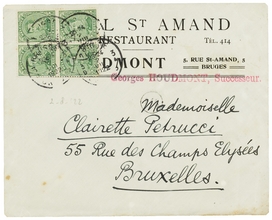 EL ST AMAND
RESTAURANT TÉL. 414
DMONT 5, RUE ST-AMAND, 5
BRUGES
Georges HOUDMONT, Successeur.
Mademoiselle
Clairette Petrucci
55 Rue des Champs Elysées
Bruxelles.